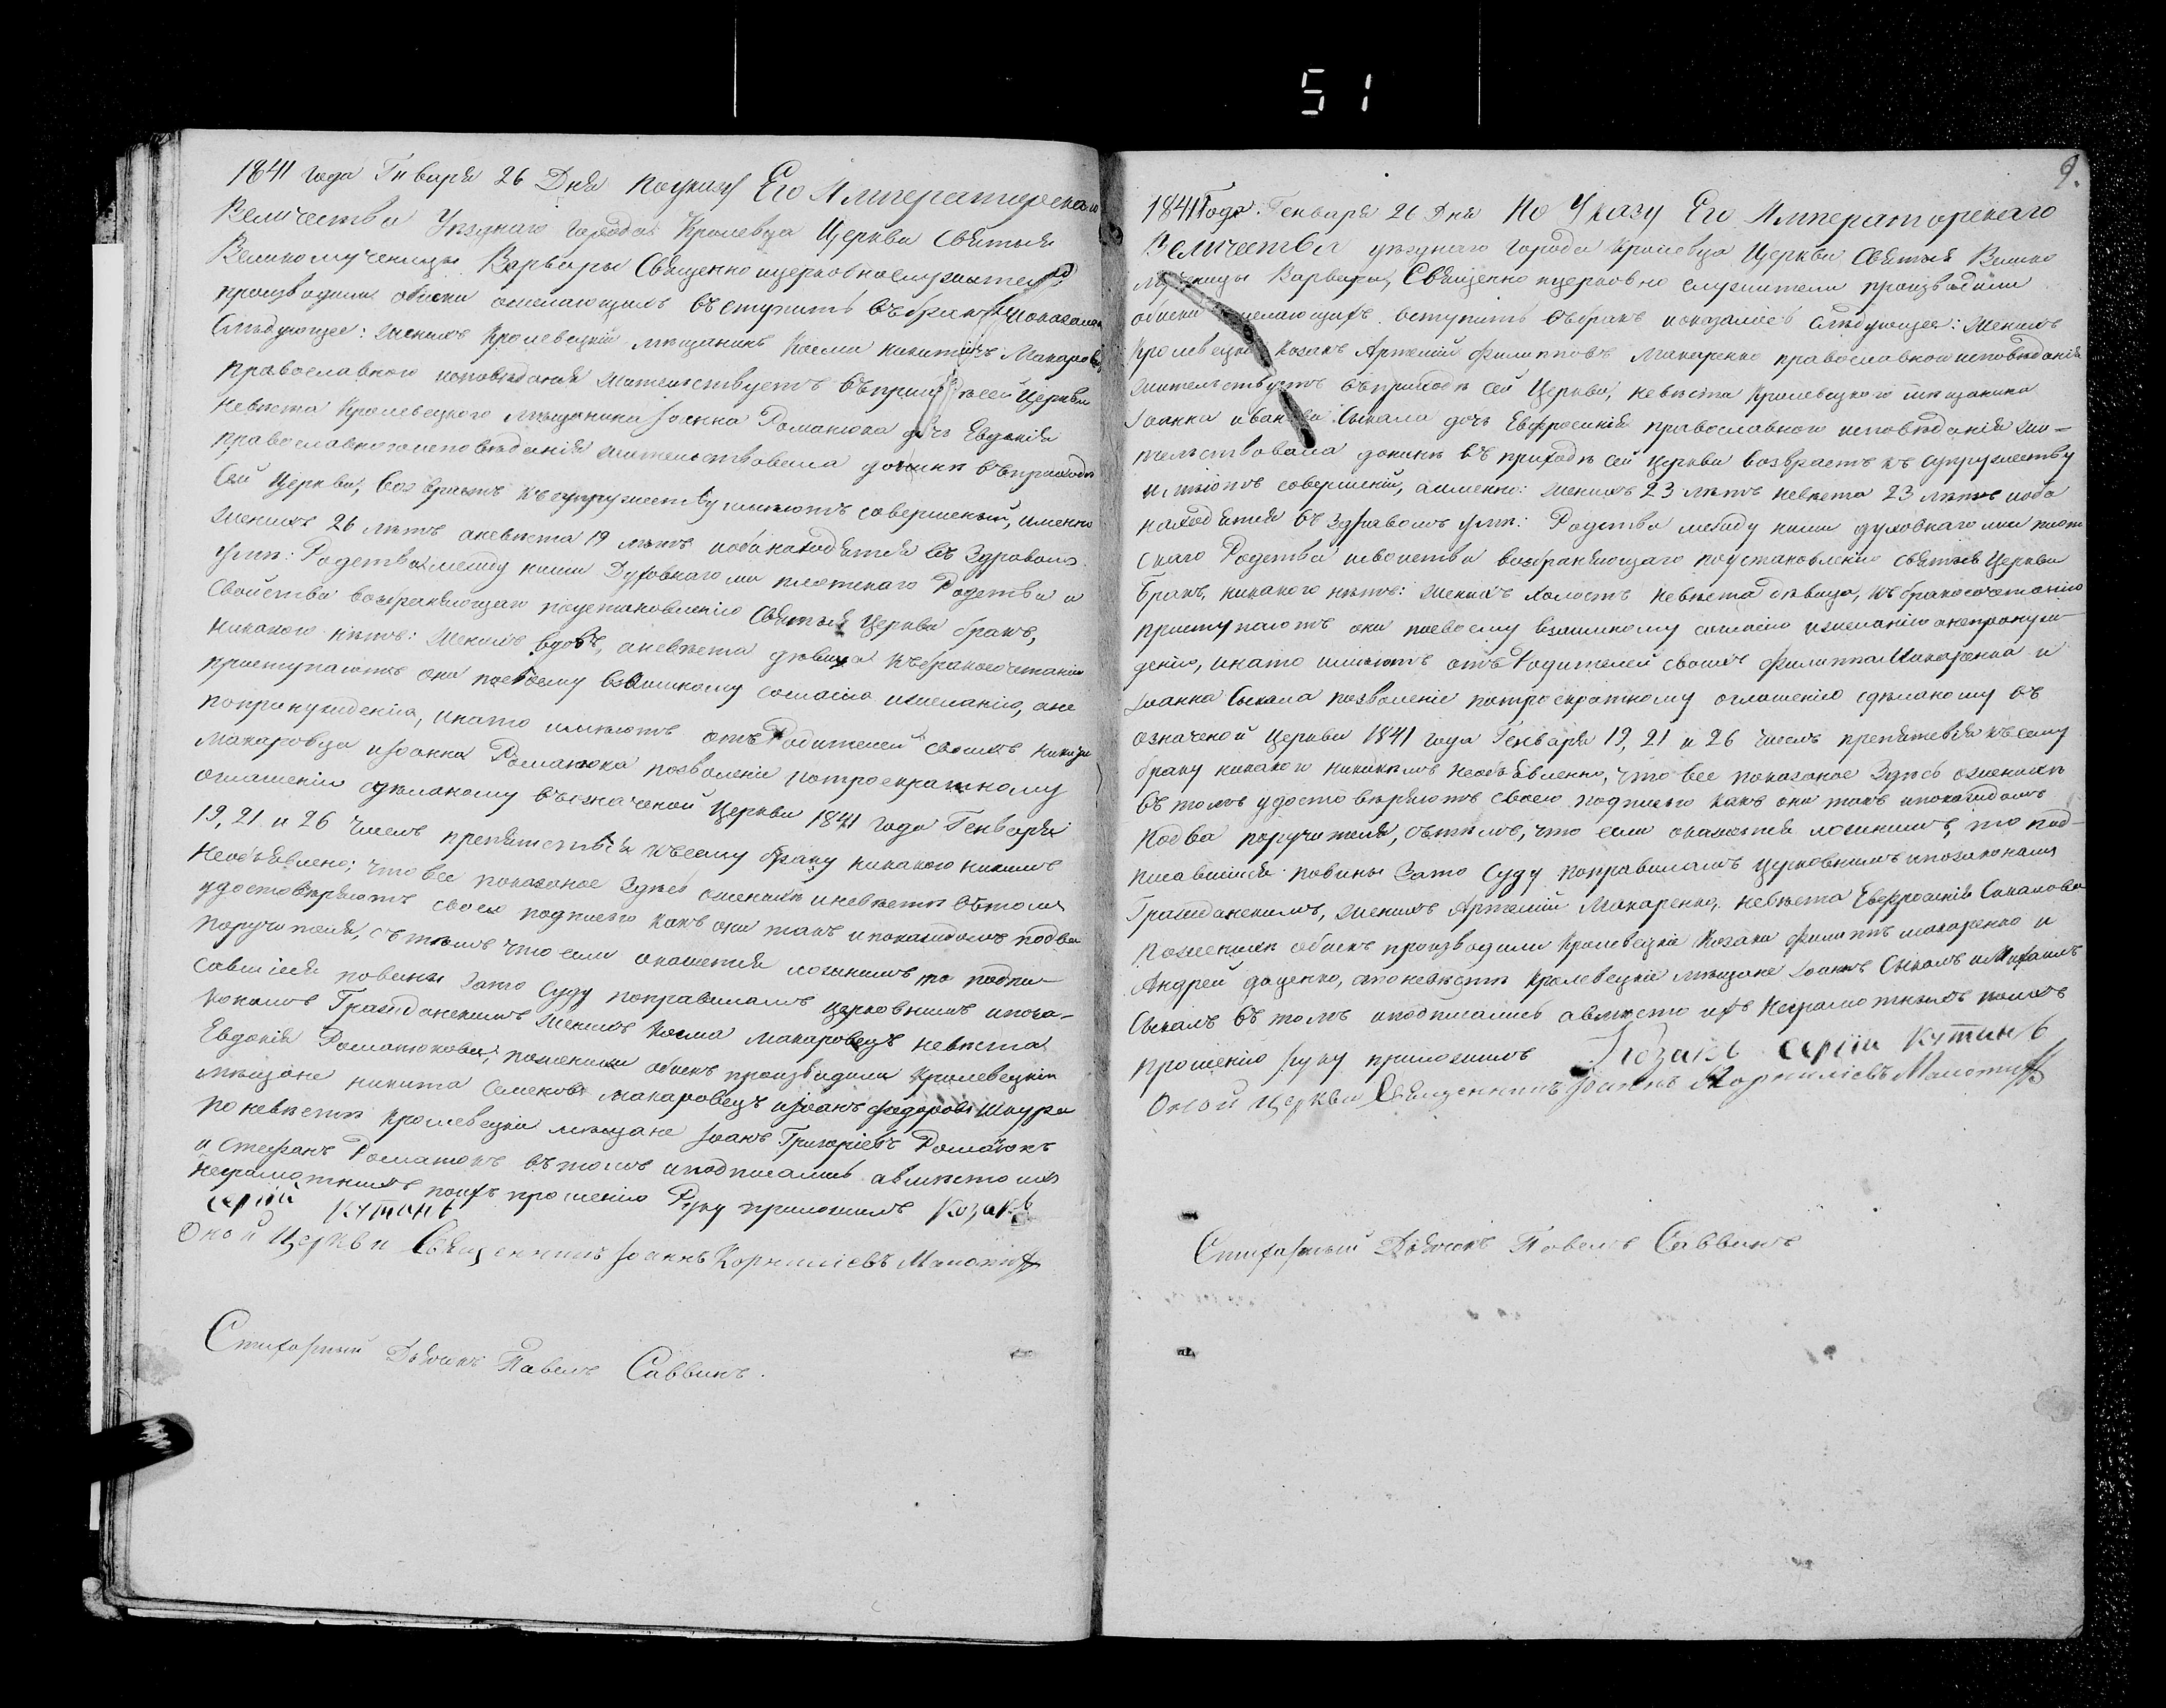 51
1841 года Генваря 26 Дня По указу Его Императорскаго
Величества Уезднаго города Кролевца Церкви Святыя
Великомученицы Варвары Священно ицерковнослужители
производили обыски желающимъ въступить въбракъ ипоказали
Следующее: женихъ Кролевецкій мѣщанинъ Косма никитинъ Макаровецъ
православного исповѣданія жительствуетъ въприходѣ сей Церкви
невѣста Кролевецкого мѣщанина Іоанна Романюка дочь Евдокія
православногоисповѣданія жительствовала донынѣ въприходѣ
Сей Церкви, возврастъ къ супружеству имѣютъ совершенный, именно
женихъ 26 лѣтъ аневѣста 19 лѣтъ иобанаходятся въ здравомъ
умѣ: Родства между ними Духовнаго или плотскаго Родства и
Свойства возбраняющаго поустановленію Святыя Церкви бракъ,
никакого нѣтъ: женихъ вдовъ, аневѣста дѣвица къбракосочетанію
приступаютъ они посвоему взаимному согласію ижеланію, ане
попринужденію, инато имѣютъ отъ Родителей своихъ никиты
Макаровца иІоанна Романюка позволеніе потроекратному
оглашенію сдѣланому въозначеной Церкви 1841 года Генваря
19, 21 и 26 числъ препятствія къ сему браку никакого никимъ
Необъявлено; что все показаное здѣсь оженихѣ иневѣсте въ томъ
удостовѣряютъ своею подписью какъ они такъ ипокаждомъ подва
поручителя, съ тѣмъ что если окажется ложнымъ то подпи-
савшіеся повинны зато Суду поправиламъ церковнымъ ипоза-
конамъ Гражданскимъ Женихъ Косма макаровецъ невѣста
Евдокія Романюкова, поженихѣ обыскъ производили Кролевецкіи
мѣщане никита Семеновъ макаровецъ иІоанъ федоровъ Шкура
по невѣсте Кролевецкіи мѣщане Іоанъ Григоріевъ Романюкъ
и стефанъ Романюкъ въ томъ иподписались авместо ихъ
неграмотныхъ поихъ прошенію Руку приложилъ Козакъ
Сергій Кутинь
Оной Церкви Священникъ Іоаннъ Корниліевъ
Стихарный Дьячокъ Павелъ Саввинъ.
9.
1841 Года Генваря 26 Дня По Указу Его Императорскаго
Величества уезднаго города Кролевца Церкви Святыя Велико
мученицы Варвары, Священно ицерковно служители производили
обыски желающихъ вступить въбракъ ипоказалось Следующее: Женихъ
Кролевецкій Козакъ Артемій филипповъ Макаренко православного исповѣданія
жительствуетъ въприходѣ сей Церкви, невѣста Кролевецкого мѣщанина
Іоанна иванова Сыкала дочь Евфросинія православного исповѣданія жи-
тельствовала донынѣ въ приходѣ сей Церкви возврастъ къ супружеству
имѣютъ совершенный, аименно: женихъ 23 лѣтъ невѣста 23 лѣтъ иоба
находятся въ здравомъ умѣ: Родства между ними духовнаго или плот
скаго Родства исвойства возбраняющаго поустановленію святыя Церкви
Бракъ, никакого нѣтъ: женихъ холостъ невѣста дѣвица, къ бракосочетанію
приступаютъ они посвоему взаимному согласію ижеланію анепопринуж-
денію, инато имѣютъ отъ Родителей своихъ филиппа Макаренка и
Іоанна Сыкала позволеніе потроекратному оглашенію сдѣланому въ
означеной Церкви 1841 года Генваря 19, 21 и 26 числъ препятствія къ сему
браку никакого никимъ необъявленно, что все показаное здѣсь оженихѣ
въ томъ удостовѣряютъ своею подписью какъ они такъ ипокаждомъ
подва поручителя, сътѣмъ, что если окажется ложнымъ, то под-
писавшіися повины зато Суду поправиламъ Церковнымъ ипозаконамъ
Гражданскимъ, женихъ Артемій Макаренко, невѣста Евфросинія Сыкалова
поженихѣ обыскъ производили Кролевецкіе Козаки филиппъ макаренко и
Андрей даценко, апоневѣстѣ Кролевецкіе мѣщане Іоанъ Сыкалъ иМихаилъ
Сыкалъ въ томъ иподписались авместо ихъ неграмотныхъ поихъ
прошенію руку приложилъ Козакъ Сергій Кутинь
Оной Церкви Священникъ Іоаннъ Корниліевъ
Стихарный Дьячокъ Павелъ Саввинъ